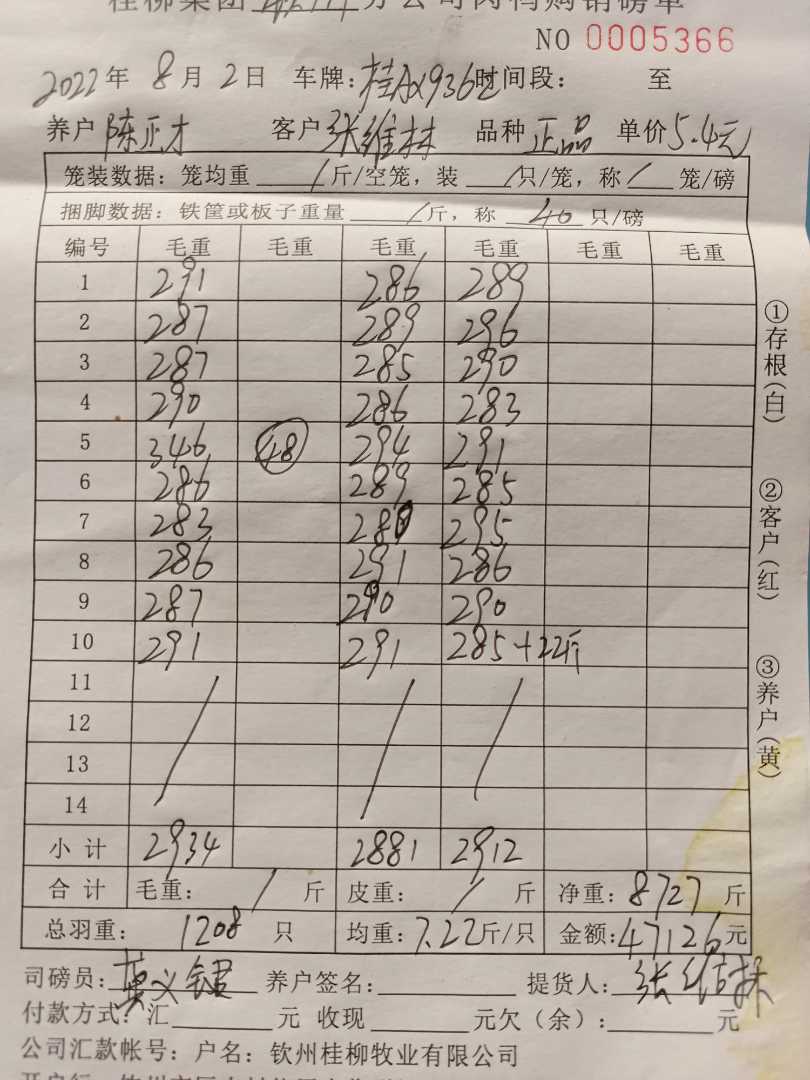 桂柳集团 分公司肉鸭购销磅单
NO 0005366
2022年 8月 2日 车牌: 时间段: 至
养户 陈正才 客户 张维林 品种 正品 单价 5.4元
笼装数据: 笼均重 / 斤/空笼, 装 / 只/笼, 称 / 笼/磅
捆脚数据: 铁筐或板子重量 / 斤, 称 40 只/磅
编号 毛重 毛重 毛重 毛重 毛重 毛重
1 291 286 289
2 287 289 296
3 287 285 290
4 290 286 283
5 346 48 294 291
6 286 289 285
7 283 280 295
8 286 291 286
9 287 290 290
10 291 291 285+22斤
11
12
13
14
小计 2934 2881 2912
合计 毛重: / 斤 皮重: / 斤 净重: 8727 斤
总羽重: 1208 只 均重: 7.22 斤/只 金额: 47126 元
司磅员: 养户签名: 提货人: 张维林
付款方式: 汇 元 收现 元欠(余): 元
公司汇款帐号: 户名: 钦州桂柳牧业有限公司
①存根(白)
②客户(红)
③养户(黄)